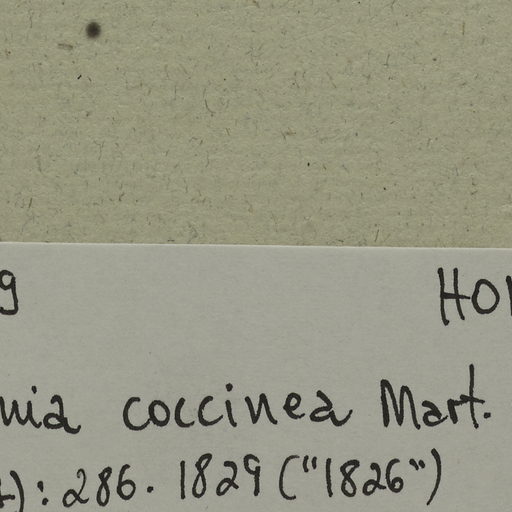 9 HO
nia coccinea Mart.
): 286. 1829 ("1826")